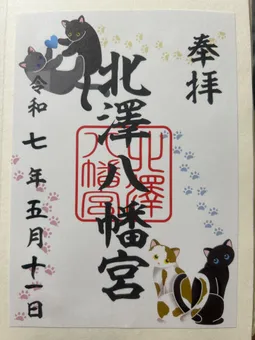 奉拝
北澤八幡宮
北澤八幡宮
令和七年五月十一日